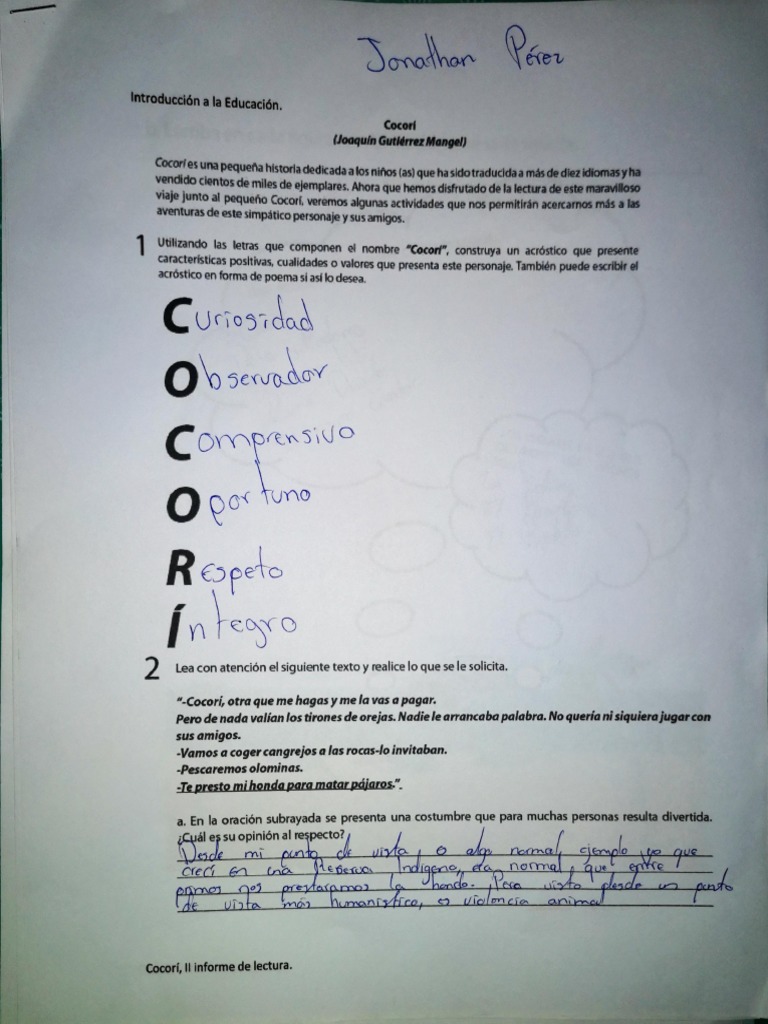 Jonathan Pérez
Introducción a la Educación.
Cocorí
(Joaquín Gutiérrez Mangel)
Cocorí es una pequeña historia dedicada a los niños (as) que ha sido traducida a más de diez idiomas y ha
vendido cientos de miles de ejemplares. Ahora que hemos disfrutado de la lectura de este maravilloso
viaje junto al pequeño Cocorí, veremos algunas actividades que nos permitirán acercarnos más a las
aventuras de este simpático personaje y sus amigos.
1 Utilizando las letras que componen el nombre "Cocorí", construya un acróstico que presente
características positivas, cualidades o valores que presenta este personaje. También puede escribir el
acróstico en forma de poema si así lo desea.
Curiosidad
Observador
Comprensivo
Oportuno
Respeto
Íntegro
2 Lea con atención el siguiente texto y realice lo que se le solicita.
"-Cocorí, otra que me hagas y me la vas a pagar.
Pero de nada valían los tirones de orejas. Nadie le arrancaba palabra. No quería ni siquiera jugar con
sus amigos.
-Vamos a coger cangrejos a las rocas-lo invitaban.
-Pescaremos olominas.
-Te presto mi honda para matar pájaros.".
a. En la oración subrayada se presenta una costumbre que para muchas personas resulta divertida.
¿Cuál es su opinión al respecto?
Desde mi punto de vista, o algo normal, ejemplo yo que
crecí en una Reserva Indígena, era normal, que entre
primos nos prestaramos la honda. Pero visto desde un punto
de vista más humanístico, es violencia animal
Cocorí, II informe de lectura.